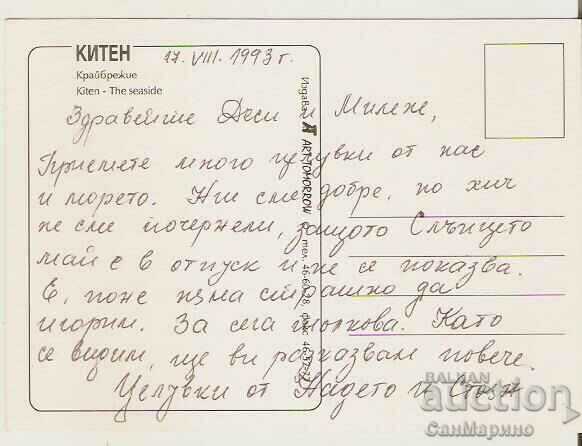 КИТЕН
Крайбрежие
Kiten - The seaside
17. VIII. 1993 г.
Здравейте Деси и Милене,
Приемете много целувки от нас
и морето. Ние сме добре, но хич
не сме почернели, защото Слънцето
май е в отпуск и не се показва.
Е, поне няма страшно да
изгорим. За сега толкова. Като
се видим, ще ви разказвам повече.
Целувки от Надето и
Издава ART TOMORROW
BALKAN
auction
СанМарино